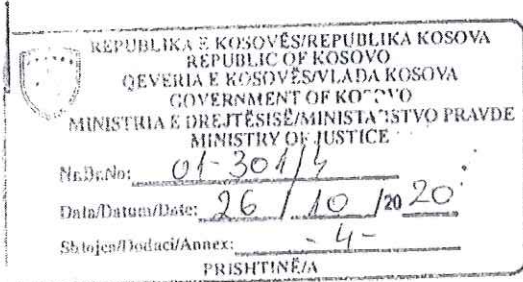 REPUBLIKA E KOSOVËS/REPUBLIKA KOSOVA
REPUBLIC OF KOSOVO
QEVERIA E KOSOVËS/VLADA KOSOVA
GOVERNMENT OF KOSOVO
MINISTRIA E DREJTËSISË/MINISTARSTVO PRAVDE
MINISTRY OF JUSTICE
Nr.Br.No: 01-301/4
Data/Datum/Date: 26 / 10 /20 20
Shtojca/Dodaci/Annex: - 4 -
PRISHTINË/A